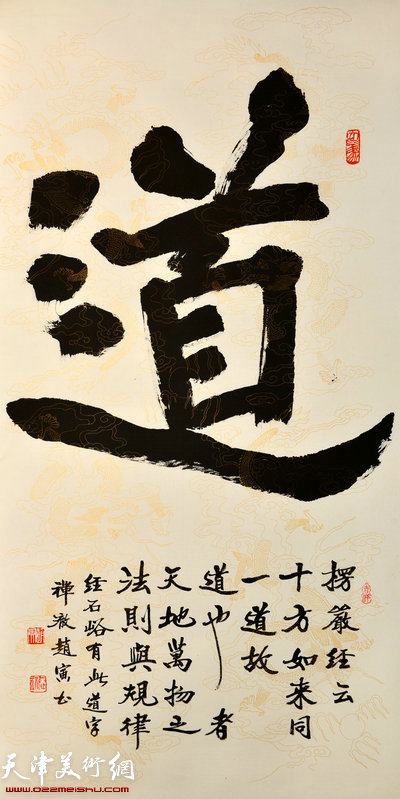 道
楞嚴经云
十方如来同
一道故
道也者
天地萬物之
法則與規律
经石峪有此道字
禅澈趙寅书
天津美術網
www.ozemeishu.com